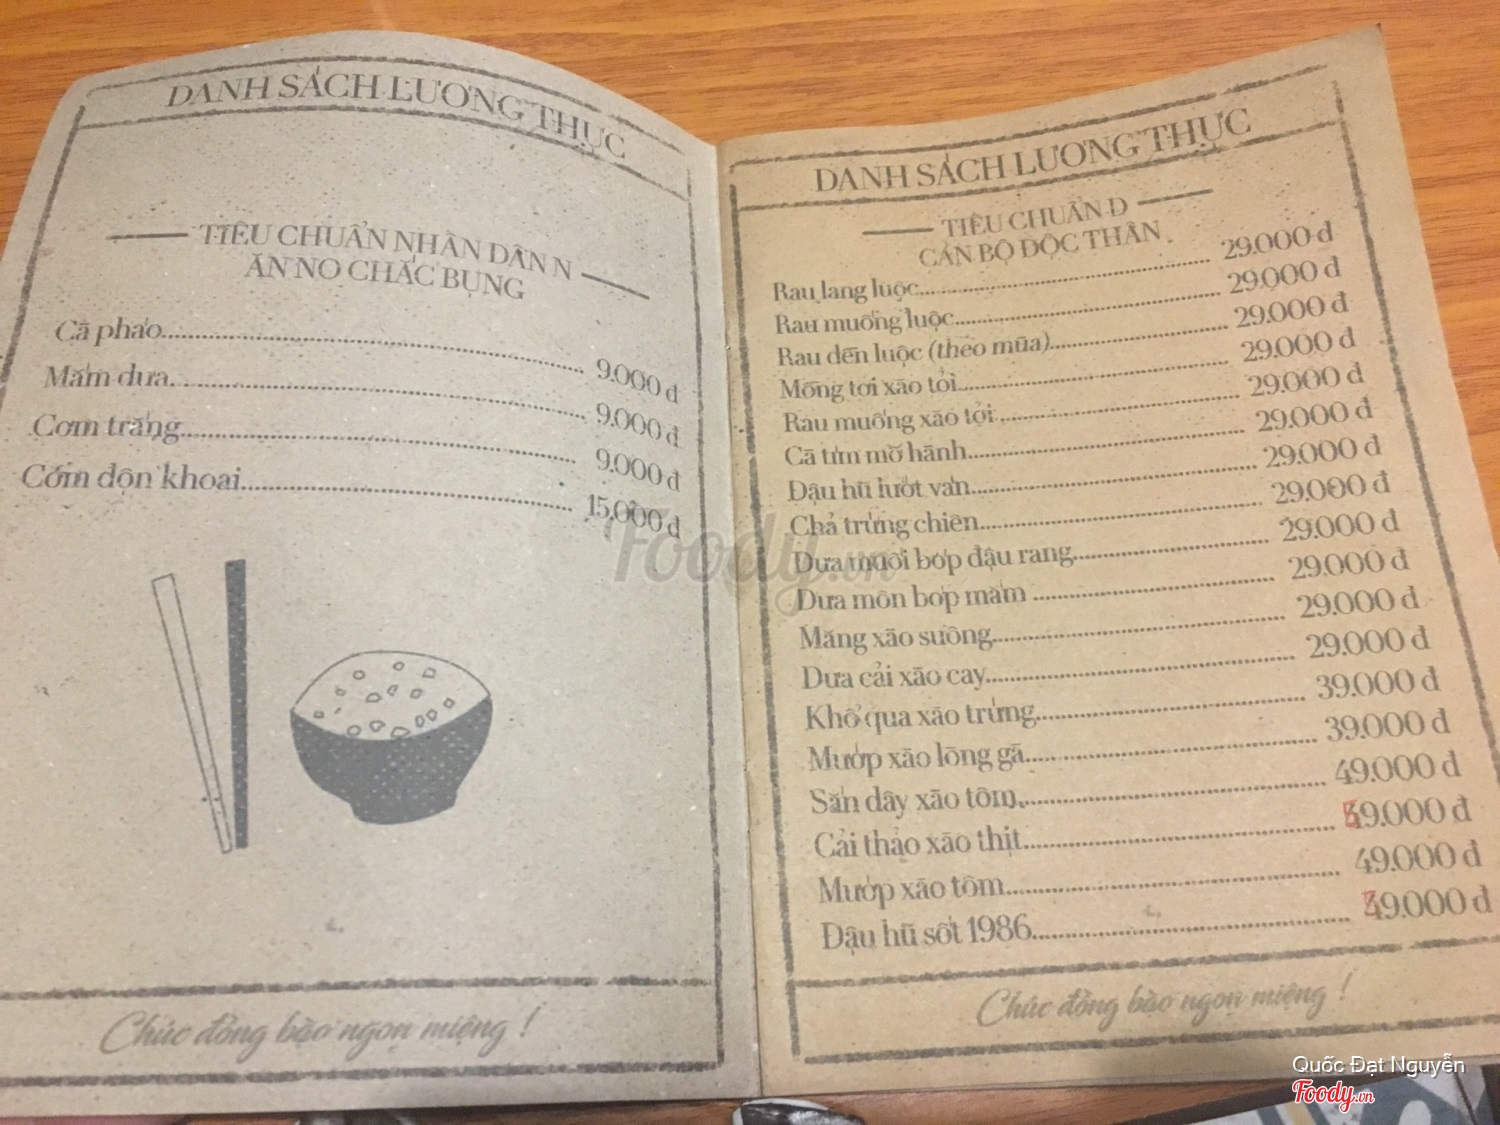 DANH SÁCH LƯƠNG THỰC
TIÊU CHUẨN NHÂN DÂN N
ĂN NO CHẮC BỤNG
Cà pháo 9.000 đ
Mắm dưa 9.000 đ
Cơm trắng 9.000 đ
Cơm độn khoai 15.000 đ
Chúc đồng bào ngon miệng !
DANH SÁCH LƯƠNG THỰC
TIÊU CHUẨN D
CÁN BỘ ĐỘC THÂN
Rau lang luộc 29.000 đ
Rau muống luộc 29.000 đ
Rau dền luộc (theo mùa) 29.000 đ
Mồng tơi xào tỏi 29.000 đ
Rau muống xào tỏi 29.000 đ
Cà tím mỡ hành 29.000 đ
Đậu hũ lướt ván 29.000 đ
Chả trứng chiên 29.000 đ
Dưa muối bóp đậu rang 29.000 đ
Dưa môn bóp mắm 29.000 đ
Măng xào suông 29.000 đ
Dưa cải xào cay 29.000 đ
Khổ qua xào trứng 39.000 đ
Mướp xào lòng gà 39.000 đ
Sắn dây xào tôm 49.000 đ
Cải thảo xào thịt 59.000 đ
Mướp xào tôm 49.000 đ
Đậu hũ sốt 1986 59.000 đ
Chúc đồng bào ngon miệng !
Foody.vn
Quốc Đạt Nguyễn
Foody.vn